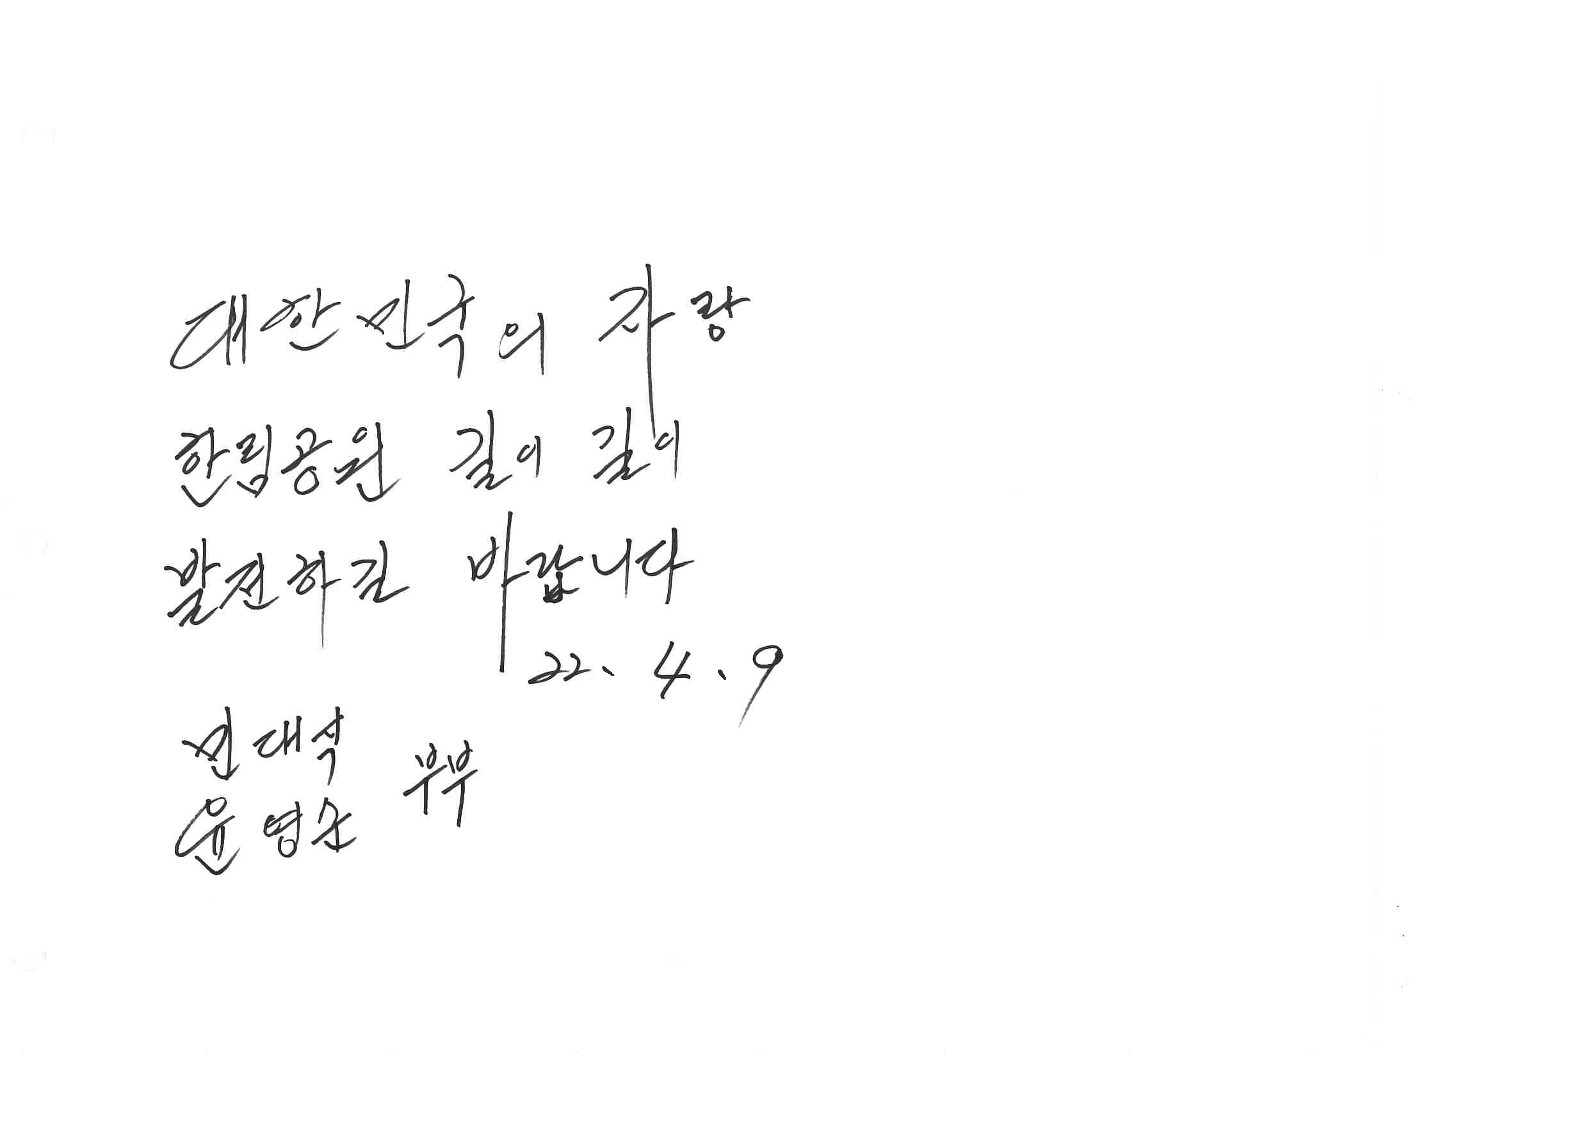 대한민국의 자랑
한림공원 길이 길이
발전하길 바랍니다
22. 4. 9
민대식 부부
윤영순